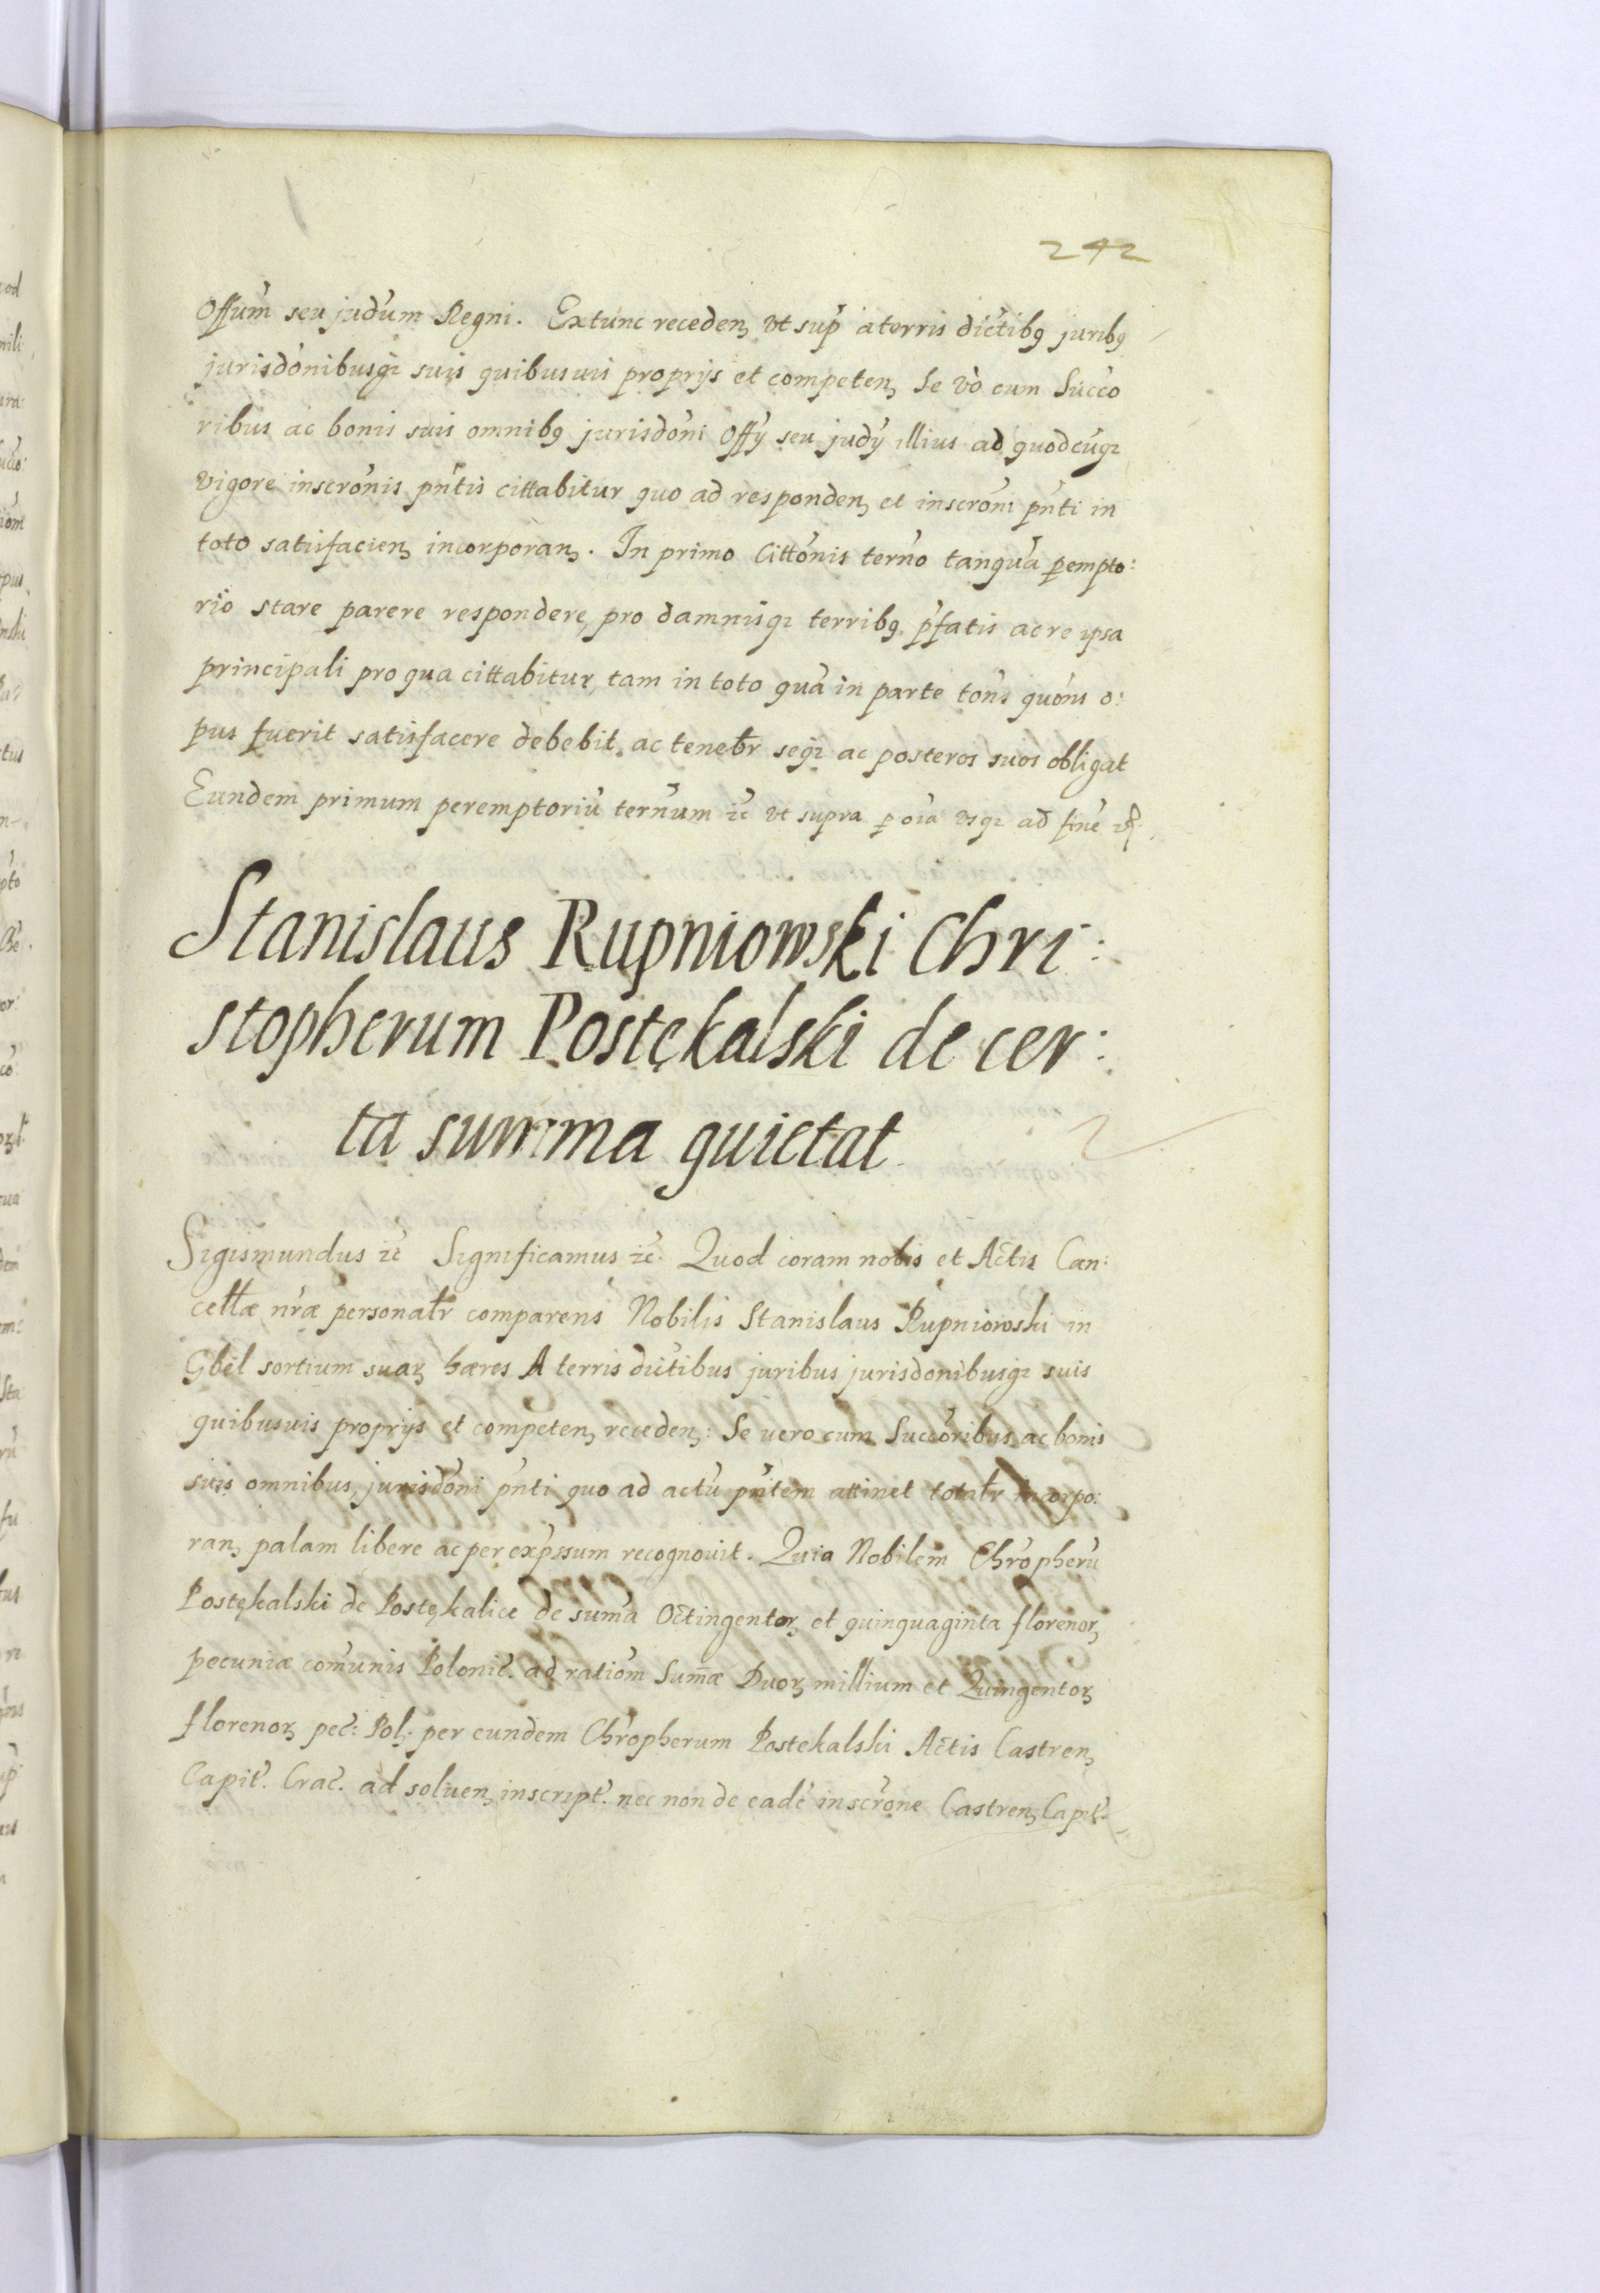 242
Offum seu judum Regni. Extunc receden, ut sup a terris dictibq juribq
jurisdonibusq suis quibusuis proprijs et competen, Se vo cum Succo
ribus ac bonis suis omnibq jurisdoni Offy seu judy illius ad quodcuq
vigore inscronis pntis cittabitur quo ad responden, et inscroni pnti in
toto satisfacien, incorporan,. In primo Cittonis terno tanqua pempto:
rio stare parere respondere, pro damnisq terribq pfatis ac re ipsa
principali pro qua cittabitur, tam in toto qua in parte tons quons o:
pus fuerit satisfacere debebit, ac tenebr seq ac posteros suos obligat
Eundem primum peremptoriu ternum &c ut supra p oia usq ad fine
Stanislaus Rupniowski Chri:
stopherum Postękalski de cer:
ta summa quietat
Sigismundus &c Significamus &c. Quod coram nobis et Actis Can:
cellæ nræ personalr comparens Nobilis Stanislaus Rupniowski in
Gbel sortium suar, hæres A terris dictibus juribus jurisdonibusq suis
quibusuis proprijs et competen, receden,: Se vero cum Succoribus ac bonis
suis omnibus, jurisdoni pnti quo ad actu pntem attinet totalr incorpo:
ran, palam libere ac per expssum recognouit. Quia Nobilem Chropheru
Postękalski de Postękalice de suma Octingentor, et quinquaginta florenor,
pecuniæ comunis Polonic. ad rationem Sumæ Duor, millium et Quingentor,
florenor, pec: Pol,. per eundem Chropherum Postekalski Actis Castren,
Capit. Crac. ad soluen, inscript. nec non de eade inscrone Castren, Capit.